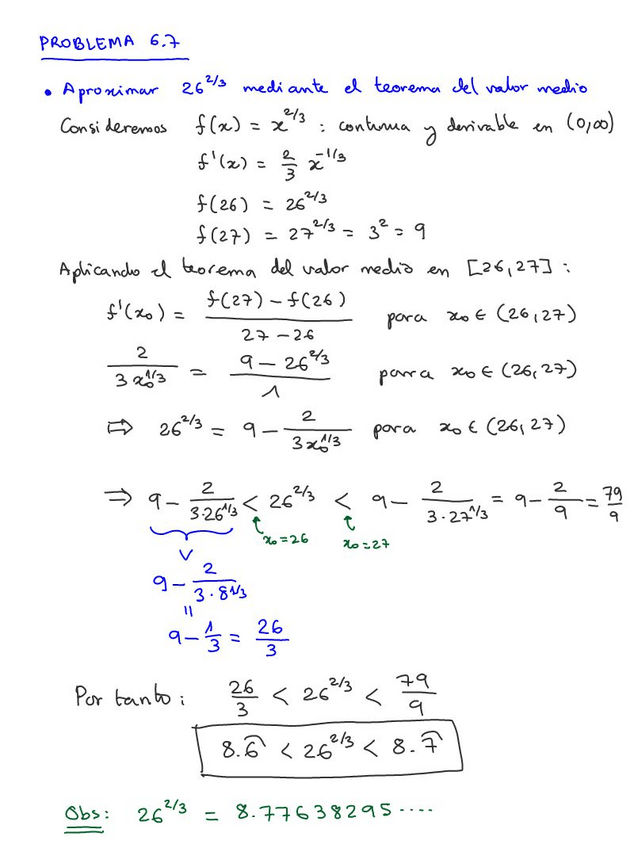 PROBLEMA 6.7
• Aproximar 26^{2/3} mediante el teorema del valor medio
Consideremos f(x) = x^{2/3} : continua y derivable en (0,∞)
f'(x) = \frac{2}{3} x^{-1/3}
f(26) = 26^{2/3}
f(27) = 27^{2/3} = 3^2 = 9
Aplicando el teorema del valor medio en [26,27] :
f'(x_0) = \frac{f(27) - f(26)}{27 - 26} para x_0 ∈ (26,27)
\frac{2}{3 x_0^{1/3}} = \frac{9 - 26^{2/3}}{1} para x_0 ∈ (26,27)
⇨ 26^{2/3} = 9 - \frac{2}{3x_0^{1/3}} para x_0 ∈ (26,27)
⇒ 9 - \frac{2}{3·26^{1/3}} < 26^{2/3} < 9 - \frac{2}{3·27^{1/3}} = 9 - \frac{2}{9} = \frac{79}{9}
x_0=26 x_0=27
∨
9 - \frac{2}{3·8^{1/3}}
=
9 - \frac{1}{3} = \frac{26}{3}
Por tanto : \frac{26}{3} < 26^{2/3} < \frac{79}{9}
8.\overset{⌢}{6} < 26^{2/3} < 8.\overset{⌢}{7}
Obs: 26^{2/3} = 8.77638295....